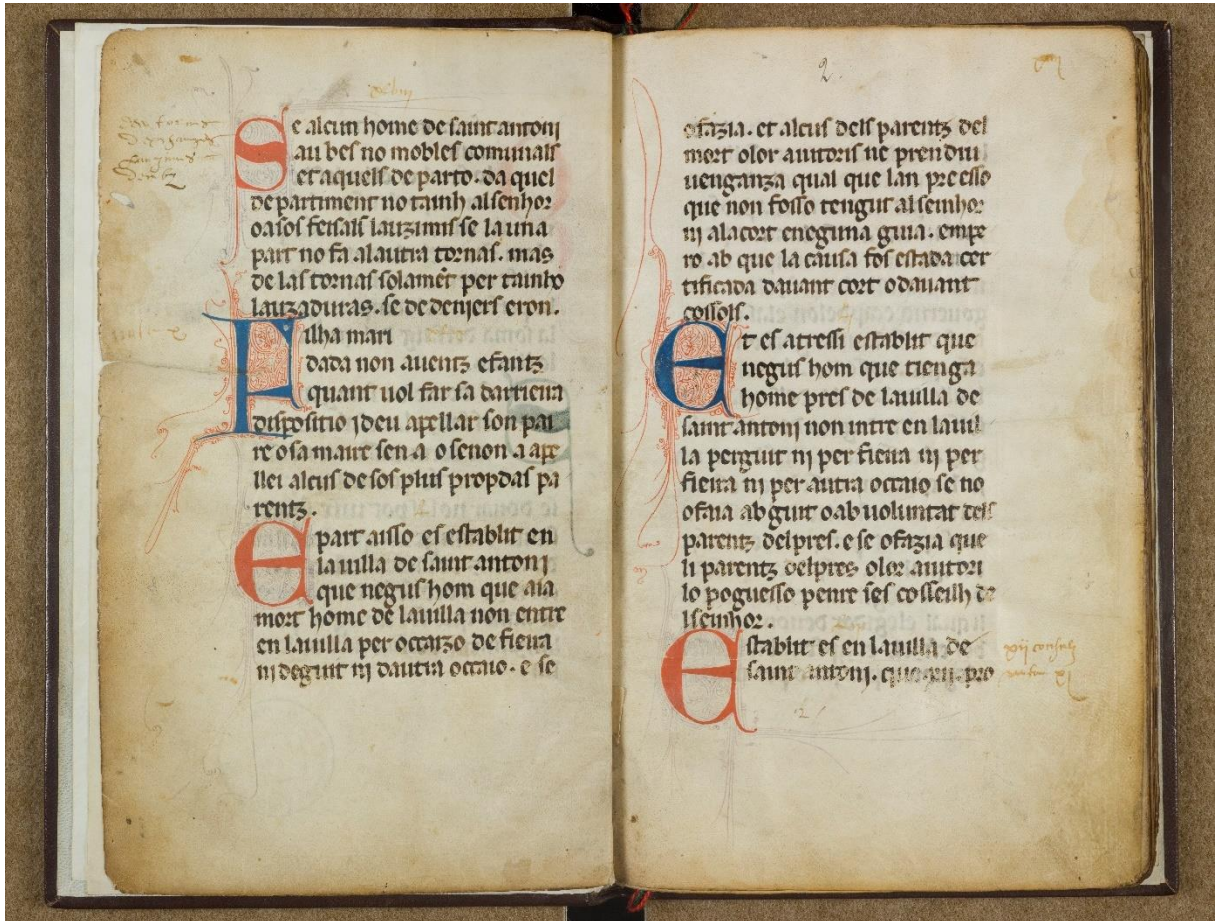 xlviij
Se alcun home de saint antoni
au bes no mobles comunals
et aquels de parto. da quel
de partiment no tainh al senhor
o a sos feisals lauzimis se la una
part no fa al autra tornas. mas
de las tornas solamēt per tainho
lauzaduras. se de deniers eron.
Filha mari
dada non auentz efantz
quant uol far sa darriera
dispositio j deu apellar son pai
re o sa maire sen a o se non a ape
llei alcus de sos plus propdas pa
rentz.
E part aisso es establit en
la uilla de saint antonj
que negus hom que aia
mort home de la uilla non entre
en la uilla per occaizo de fieira
nj de guit nj dautra occaio. e se
2
o fazia. et alcus dels parentz del
mort o lor aiutoris ne prendiu
uenganza qual que lan preesso
que non fosso tengut al seinhor
nj a la cort eneguna guia. empe
ro ab que la causa fos estada cer
tificada dauant cort o dauant
cossols.
Et es atressi establit que
negus hom que tienga
home pres de la uilla de
saint antonj non intre en la uil
la per guit nj per fieira nj per
fieira ni per autra occaio se no
o faia ab guit o ab uoluntat dels
parentz del pres. e se o fazia que
li parentz del pres o lor aiutori
lo poguesso penre ses cosseilh de
lseinhor.
Establit es en la uilla de
saint antonj. que .xii. pro
xij consulz
2